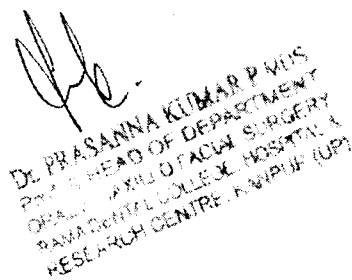 Dr. PRASANNA KUMAR P MDS
HEAD OF DEPARTMENT
ORAL MAXILLOFACIAL SURGERY
RAMA DENTAL COLLEGE, HOSPITAL &
RESEARCH CENTRE, KANPUR (UP)